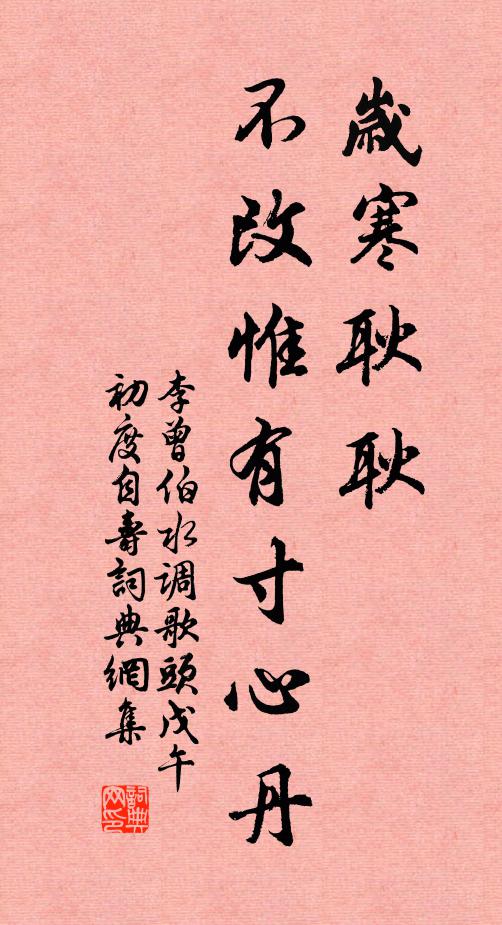 歲寒耿耿
不改惟有寸心丹
李曾伯水调歌頭戊午
初度自壽詞典網集
詞典
网印